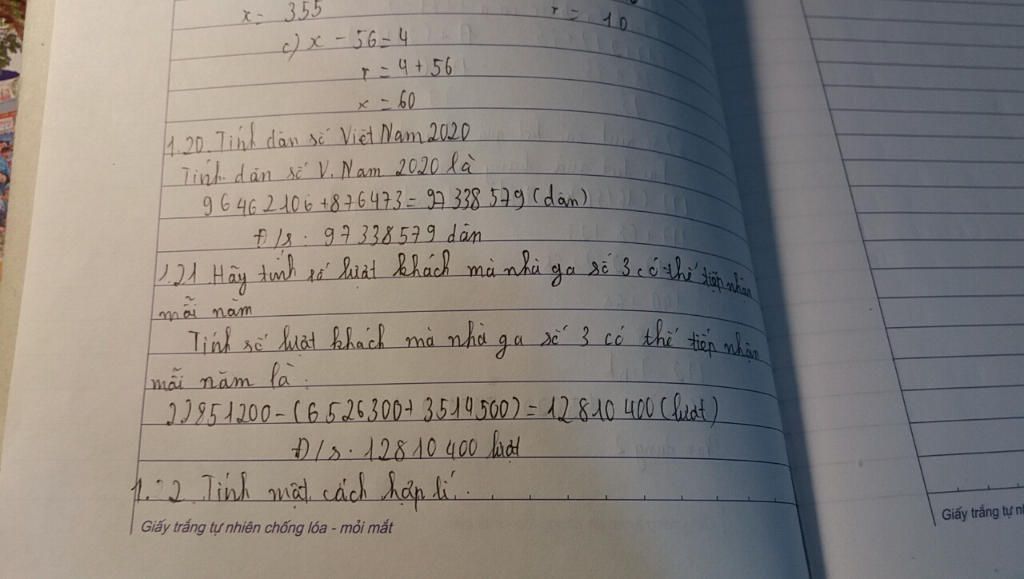 x = 355
r = 10
c) x - 56 = 4
r = 4 + 56
x = 60
1.20. Tính dân số Việt Nam 2020
Tính dân số V. Nam 2020 là
96 462 106 + 876473 = 97 338 579 (dân)
Đ/s : 97338579 dân
1.21 Hãy tính số lượt khách mà nhà ga số 3 có thể tiếp nhận
mỗi năm
Tính số lượt khách mà nhà ga số 3 có thể tiếp nhận
mỗi năm là :
22851200 - (6 526300 + 3514500) = 12810 400 (lượt)
Đ/s : 12810 400 lượt
1.22 Tính một cách hợp lí.
Giấy trắng tự nhiên chống lóa - mỏi mắt
Giấy trắng tự